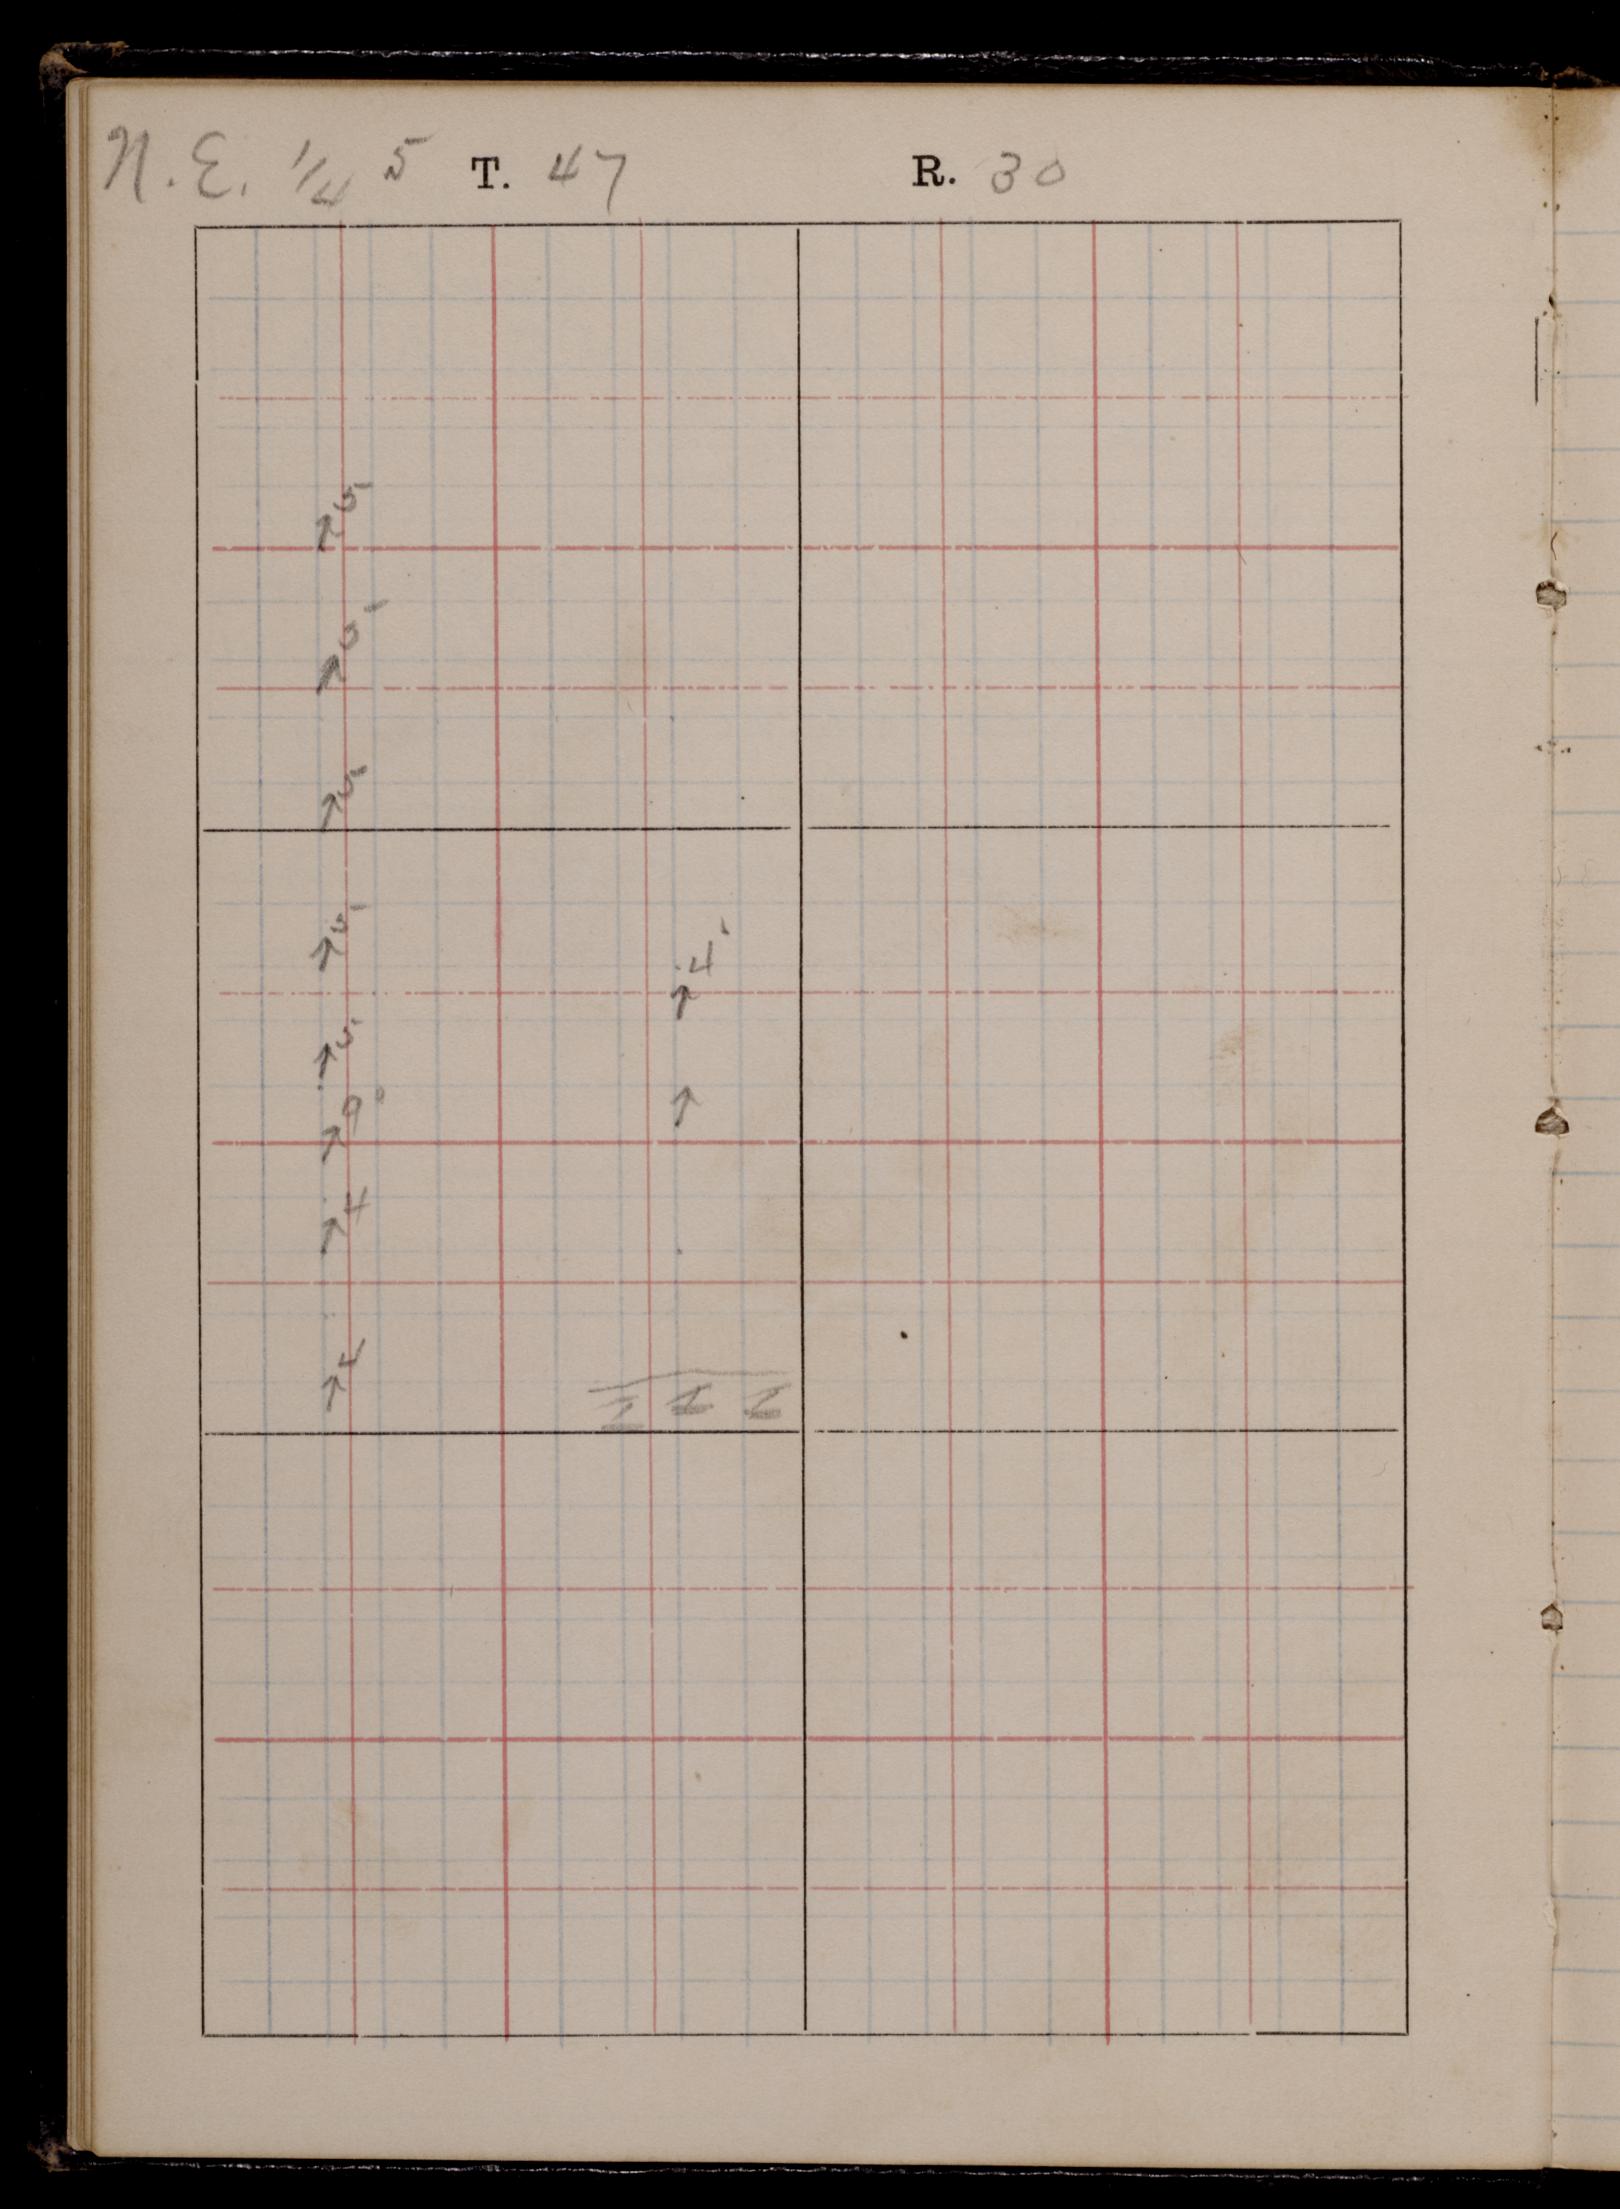 N. E. 1/4 5 T. 47 R. 30
5
5
5
5
4
5
9
4
4